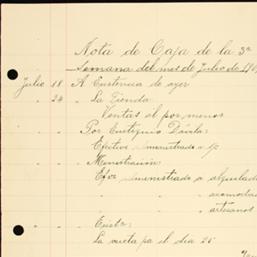 Nota de Caja de la 3a
Semana del mes de Julio de 190
Julio 18 A Existencia de ayer
" 24 " La Tienda
Ventas al por menor
" " Por Eutiquio Dávila:
Efectivo suministrado s/c
" " " Ministración:
Efvo suministrado a alquilado
" " acomodado
" " artesanos
" " " Exista:
La vuelta pa el dia 25